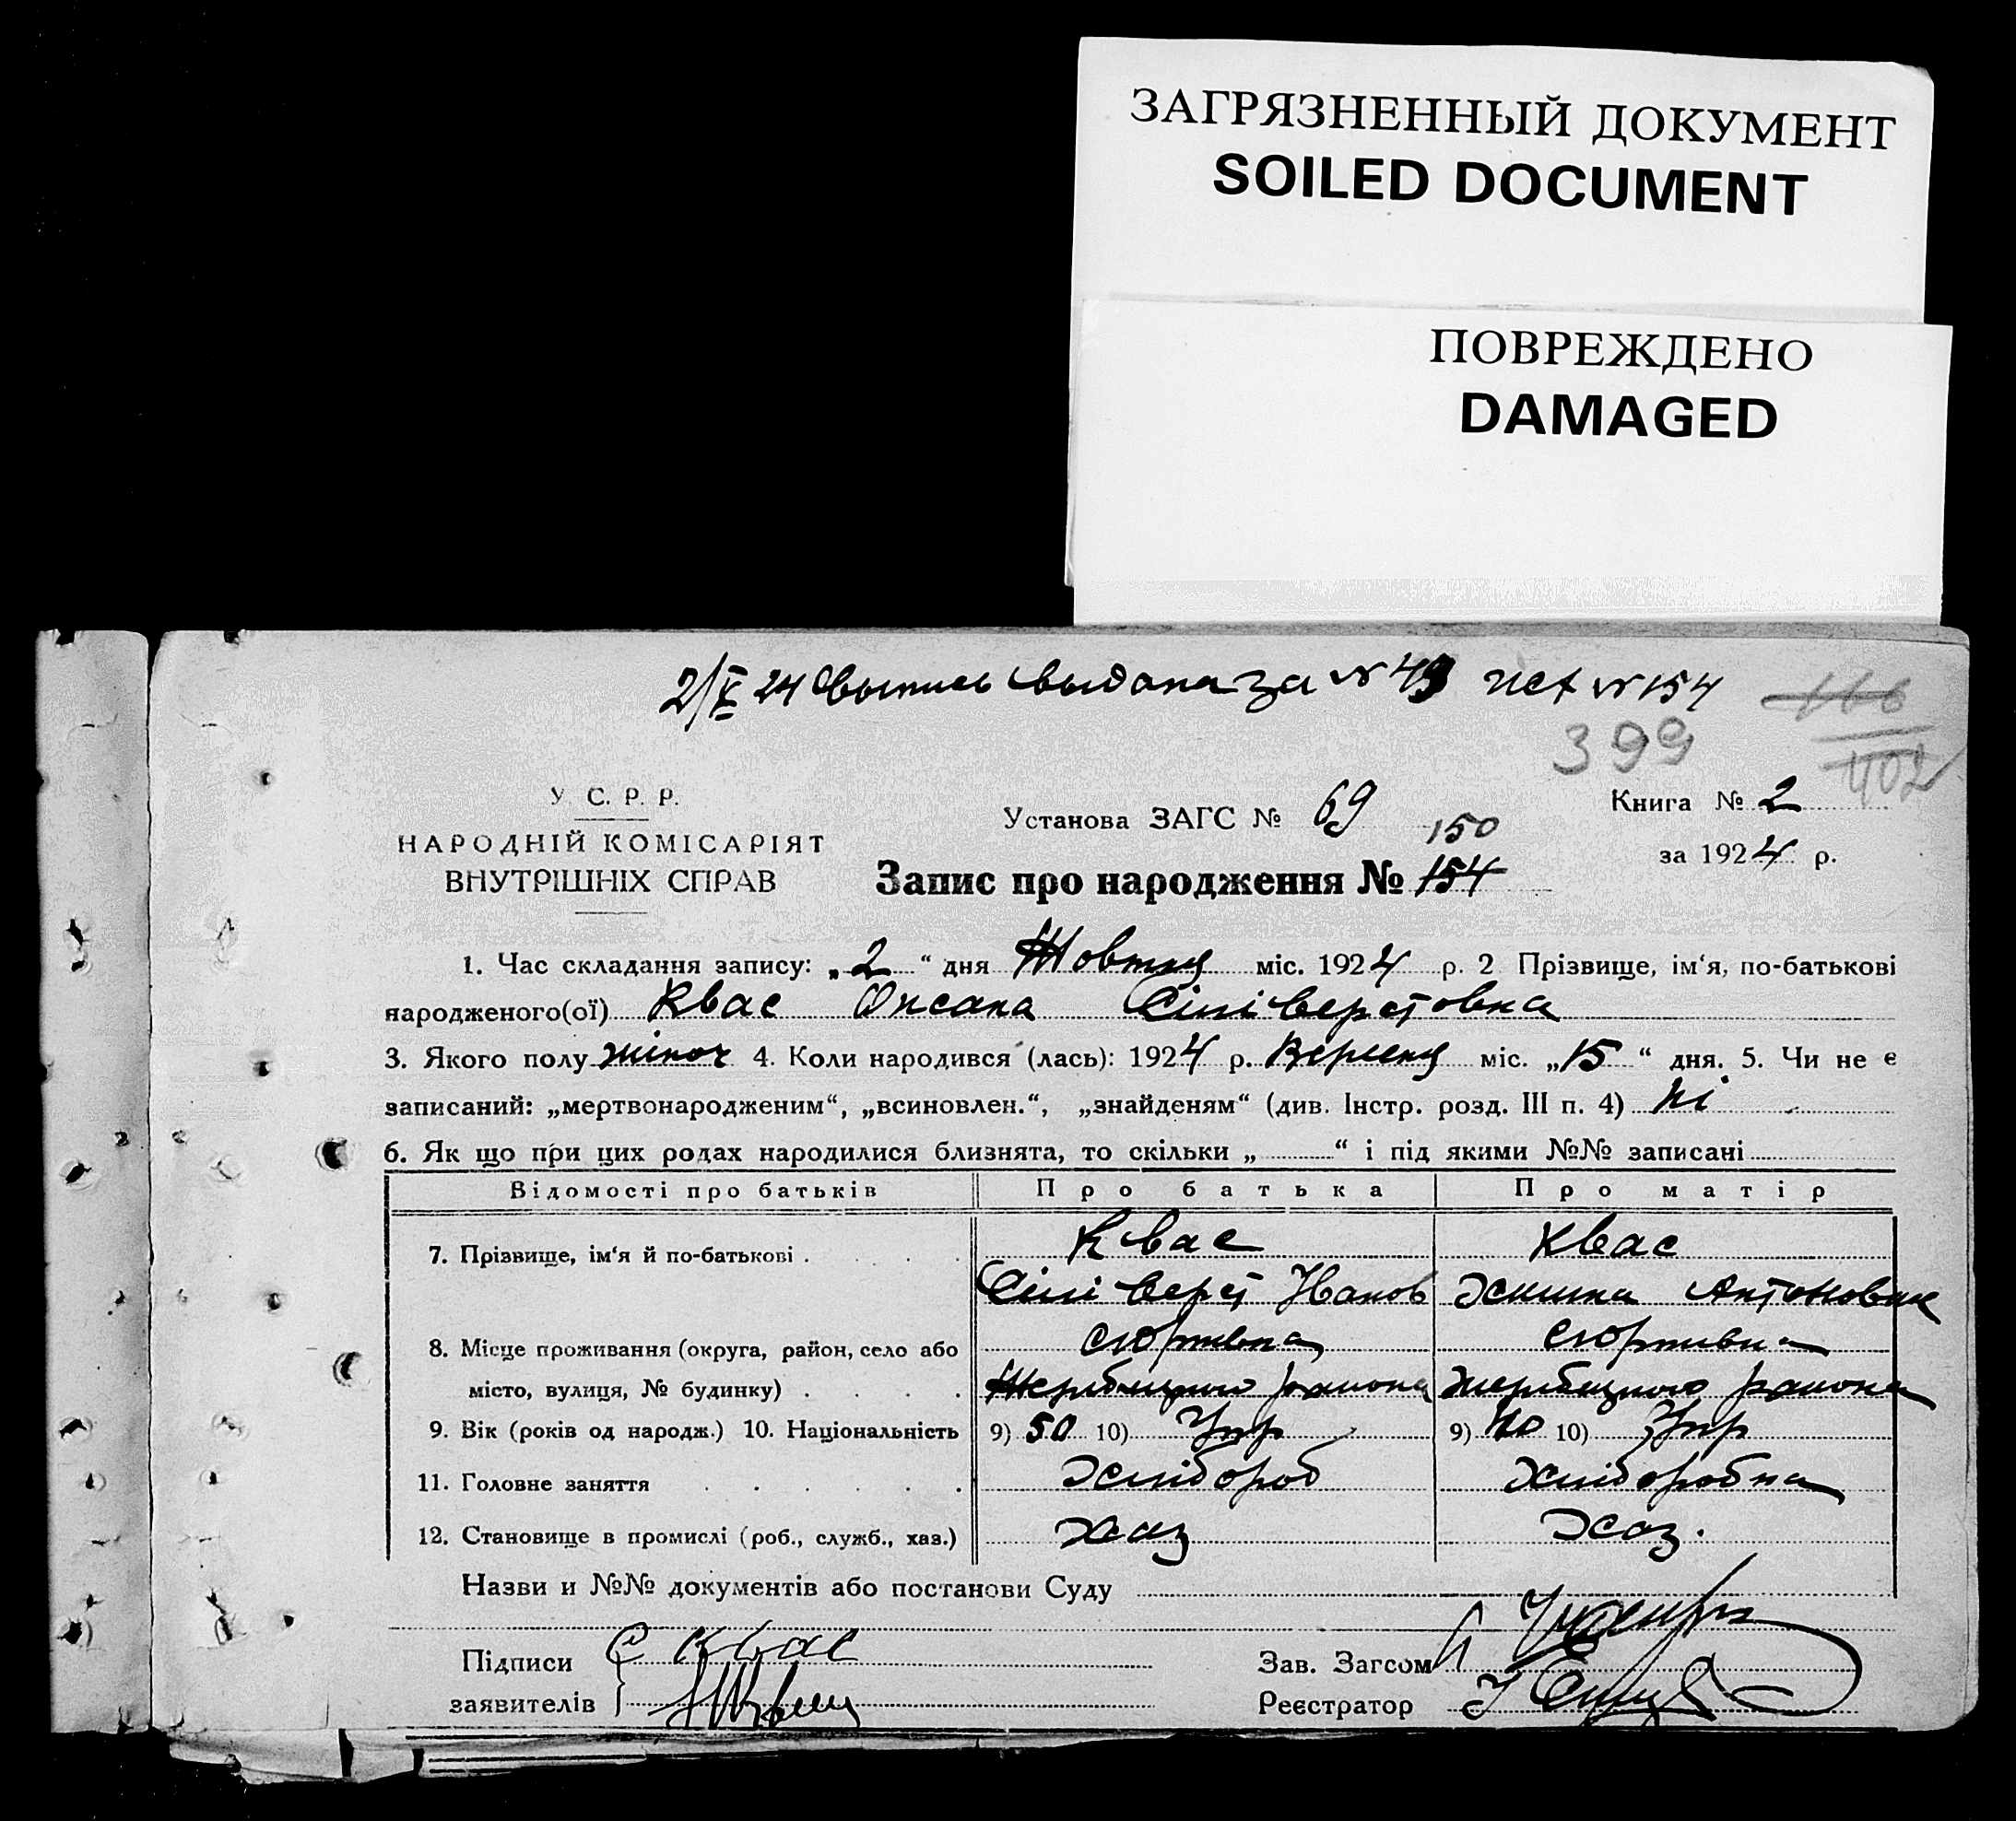 ЗАГРЯЗНЕННЫЙ ДОКУМЕНТ
SOILED DOCUMENT
ПОВРЕЖДЕНО
DAMAGED
2/X 24 выпись выдана за № 49 исх № 154
166
399
402
У. С. Р. Р.
НАРОДНІЙ КОМІСАРІЯТ
ВНУТРІШНІХ СПРАВ
Установа ЗАГС № 69
Книга № 2
за 1924 р.
150
Запис про народження № 154
1. Час складання запису: „2“ дня Жовтня міс. 1924 р. 2 Прізвище, ім‘я, по-батькові
народженого(ої) Квас Оксана Сіліверстовна
3. Якого полу жіноч 4. Коли народився (лась): 1924 р. Вересня міс. „15“ дня. 5. Чи не є
записаний: „мертвонародженим“, „всиновлен.“, „знайденям“ (див. Інстр. розд. III п. 4) ні
6. Як що при цих родах народилися близнята, то скільки „ “ і під якими №№ записані
Відомості про батьків Про батька Про матір
7. Прізвище, ім‘я й по-батькові . Квас Квас
Сіліверст Іванов Антоновна
8. Місце проживання (округа, район, село або
місто, вулиця, № будинку) района района
9. Вік (років од народж.) 10. Національність 9) 50 10) Укр 9) 40 10) Укр
11. Головне заняття Хлібороб Хліборобка
12. Становище в промислі (роб., служб., хаз.) Хаз Хаз.
Назви и №№ документів або постанови Суду
Підписи С Квас
заявителів
Зав. Загсом
Реєстратор